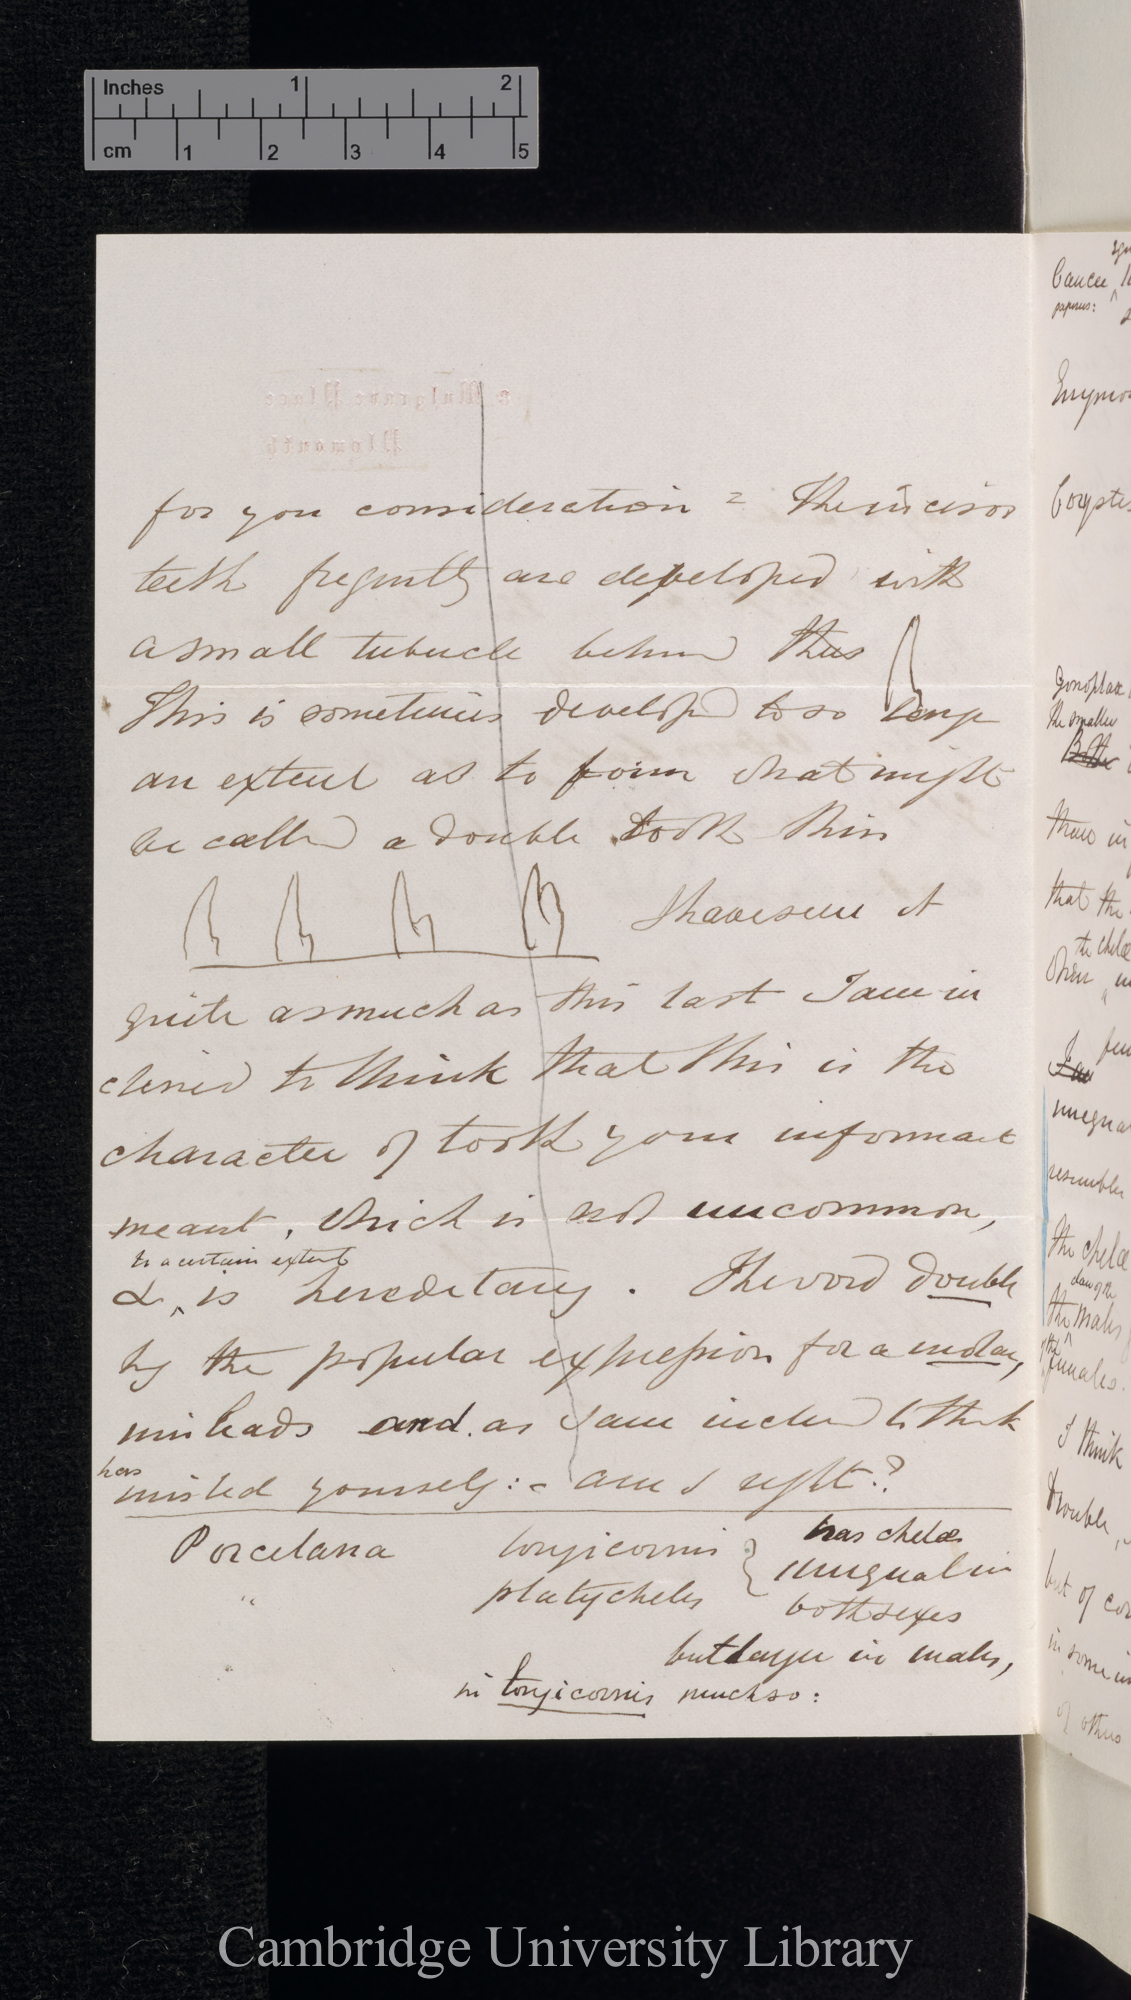 Inches 1 2
cm 1 2 3 4 5
8 Mulgrave Place
Plymouth
for you consideration = The incisor
teeth freqently are developed with
a small tubucle behind thus
This is sometimes developed to so large
an extent as to form what might
be called a double tooth thus
I have seen it
quite as much as this last I am in
clined to think that this is the
character of tooth your informant
meant, which is not uncommon,
to a certain extent
& ^ is hereditary. The word double
by the popular expression for a molar,
misleads and as I am inclined to think
has
misled yourself:- am I right?
Porcelana longicornis } has chelæ
" platycheles unequal in
both sexes
but larger in males,
in longicornis much so:
Cancer
Corystes
Gonoplax
the smaller
than in
that the
the chelæ
resembles
the chelæ
the males
females.
I think
double,
but of
in some
of others
Cambridge University Library